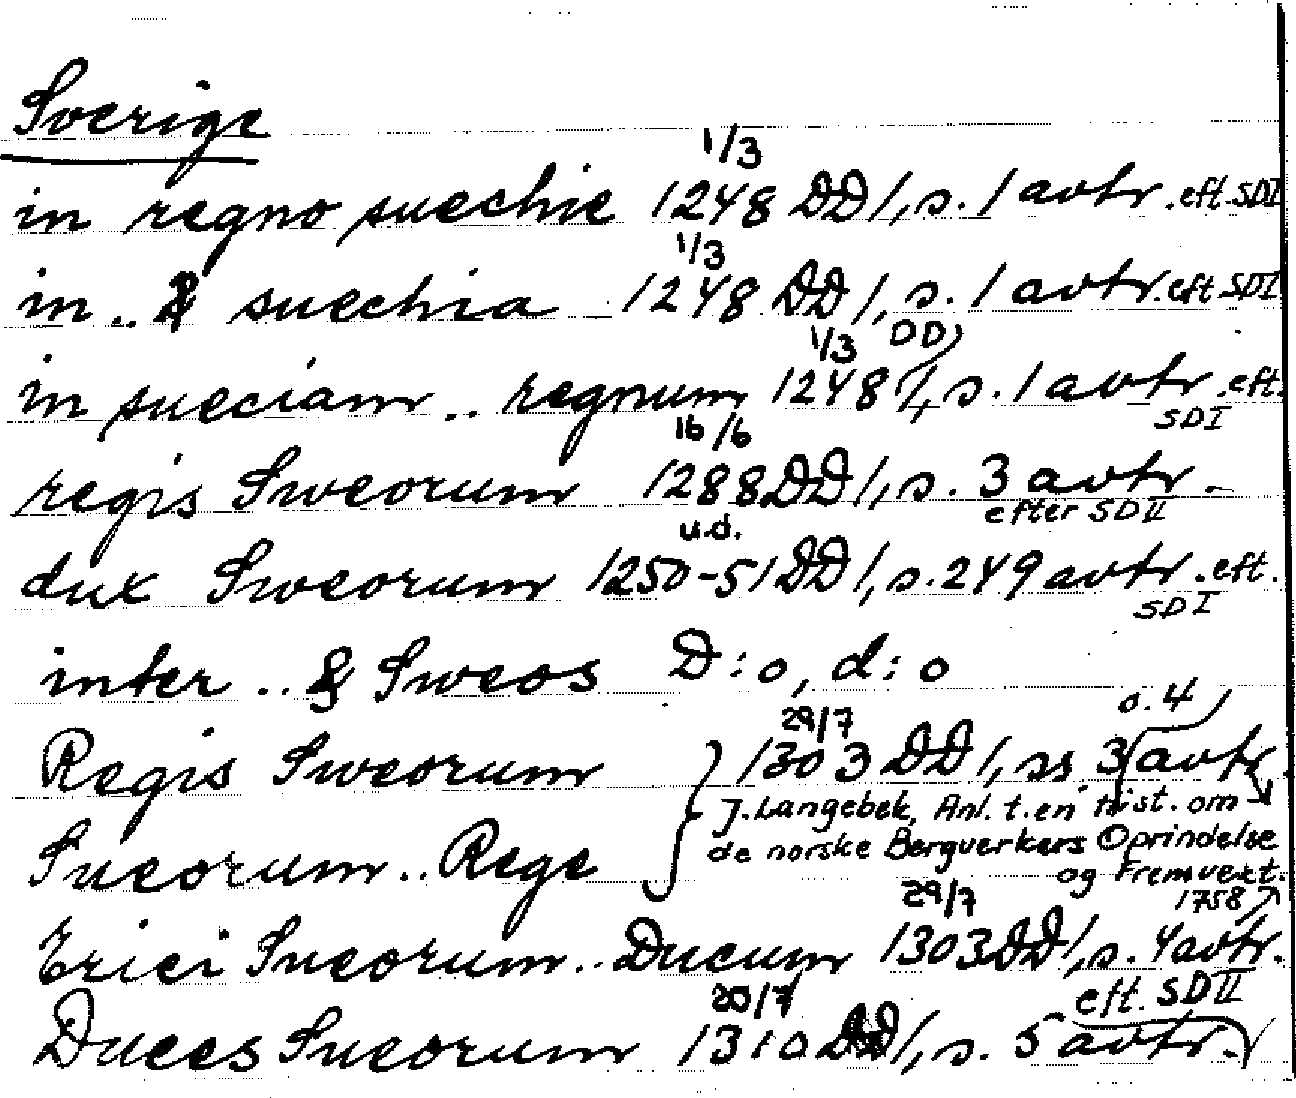 Sverige
1/3
in regno suechie 1248 DD 1, s. 1 avtr. eft. SDI
1/3
in .. & suechia 1248 DD 1, s. 1 avtr. eft SDI
1/3 DD
in sueciam .. regnum 1248 1, s. 1 avtr. eft.
SDI
16/6
regis Sweorum 1288 DD 1, s. 3 avtr.
efter SDII
u.d.
dux Sweorum 1250-51 DD 1, s. 249 avtr. eft.
SDI
inter .. & Sweos D:o, d:o
29/7 o. 4
Regis Sweorum 1303 DD 1, ss. 3 avtr.
J. Langebek, Anl. t. en Hist. om
de norske Bergverkers Oprindelse
Sueorum .. Rege
og Fremvext.
29/7 1758
Erici Sueorum .. Ducum 1303 DD 1, s. 4 avtr.
20/7 eft. SDII
Duces Sueorum 1310 DD 1, s. 5 avtr.